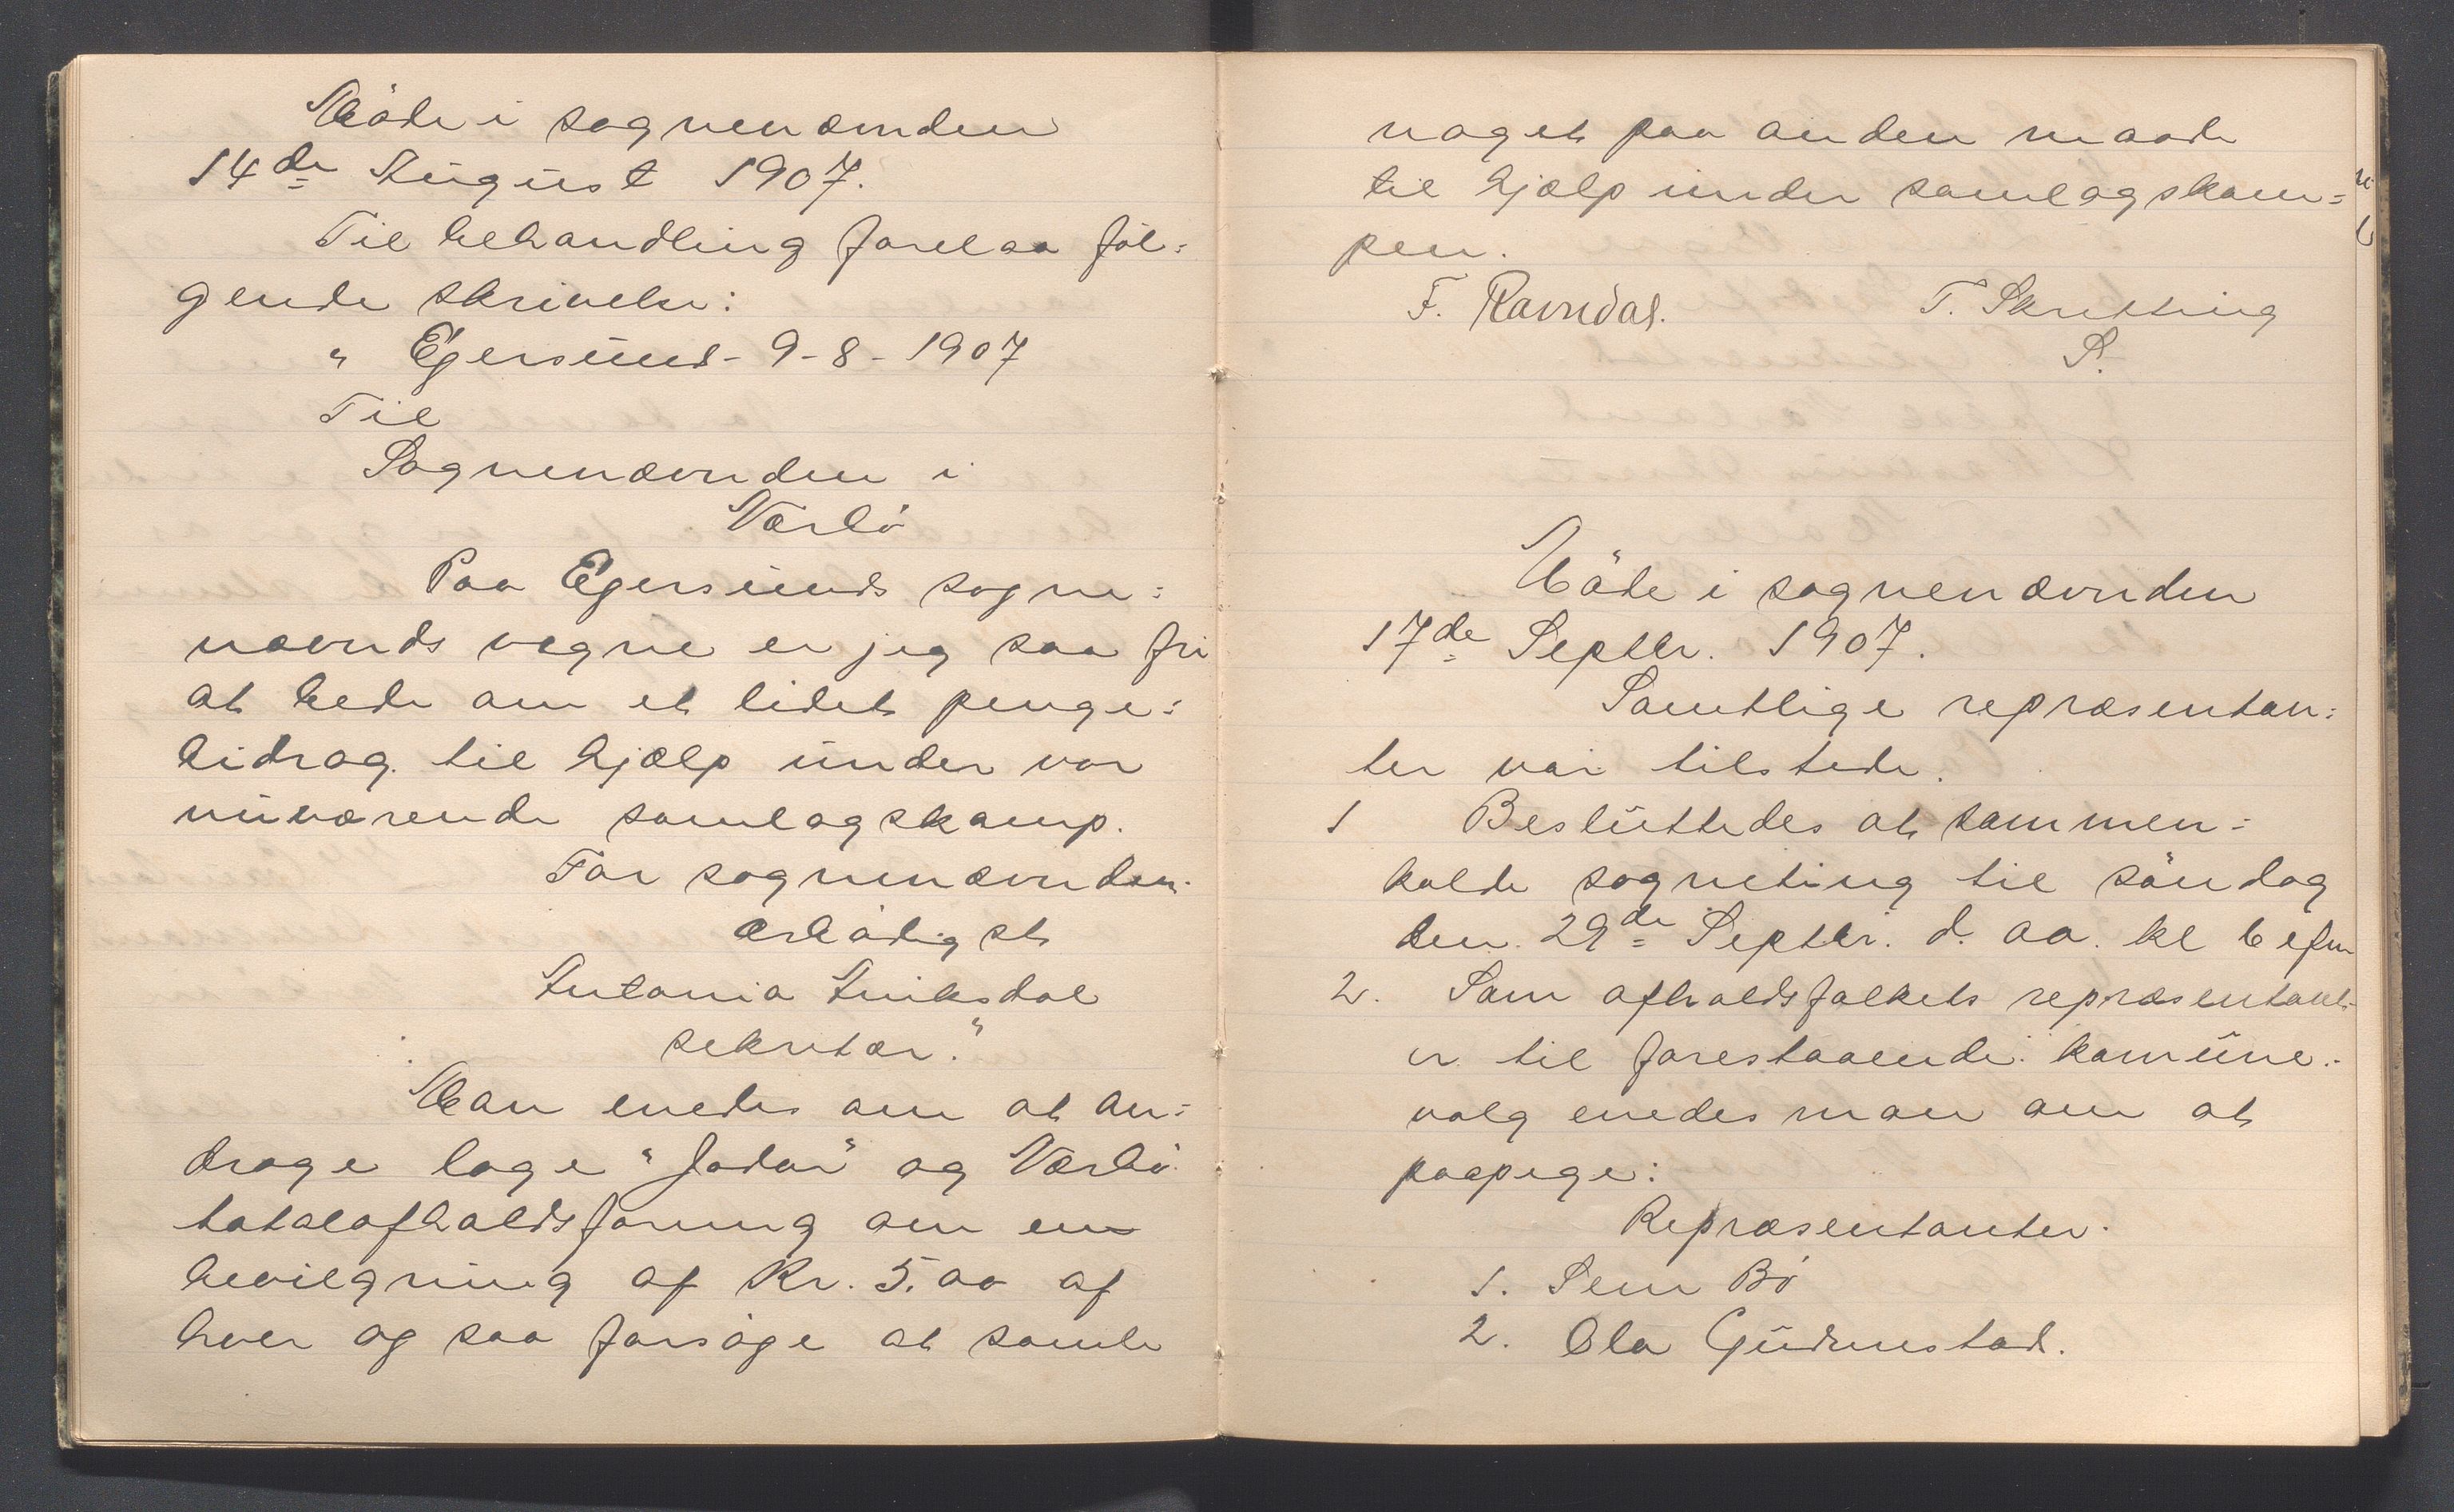 Möde i sognenævnden
14de August 1907.
Til behandling forelaa föl=
gende skrivelse:
" Egersund - 9-8-1907
Til
Sognenævnden i
Nærbö
Paa Egersunds sogne=
nævnds vegne er jeg saa fri
at bede om et lidet penge=
bidrag til hjælp under vor
nuværende samlagskamp.
For sognenævnden.
ærbödigst
Antonia
sekretær."
Man enedes om at an=
drage loge "Jadar" og Nærbö
totalafholdsforning om en
bevilgning af Kr. 5.00 af
hver og saa forsöge at samle
noget paa anden maade
til hjælp under samlagskam=
pen.
F. Ravndal. T. Skretting
S.
Möde i sognenævnden
17de Septbr. 1907.
Samtlige repræsentan=
ter var tilstede.
1 Besluttedes at sammen=
kalde sogneting til söndag
den 29de Septbr. d. aa. kl 6 efm
2. Som afholdsfolkets repræsentant-
er til forestaaende komune=
valg enedes man om at
paapege:
Repræsentanter.
1. Sem Bö
2. Ola Gudmestad.